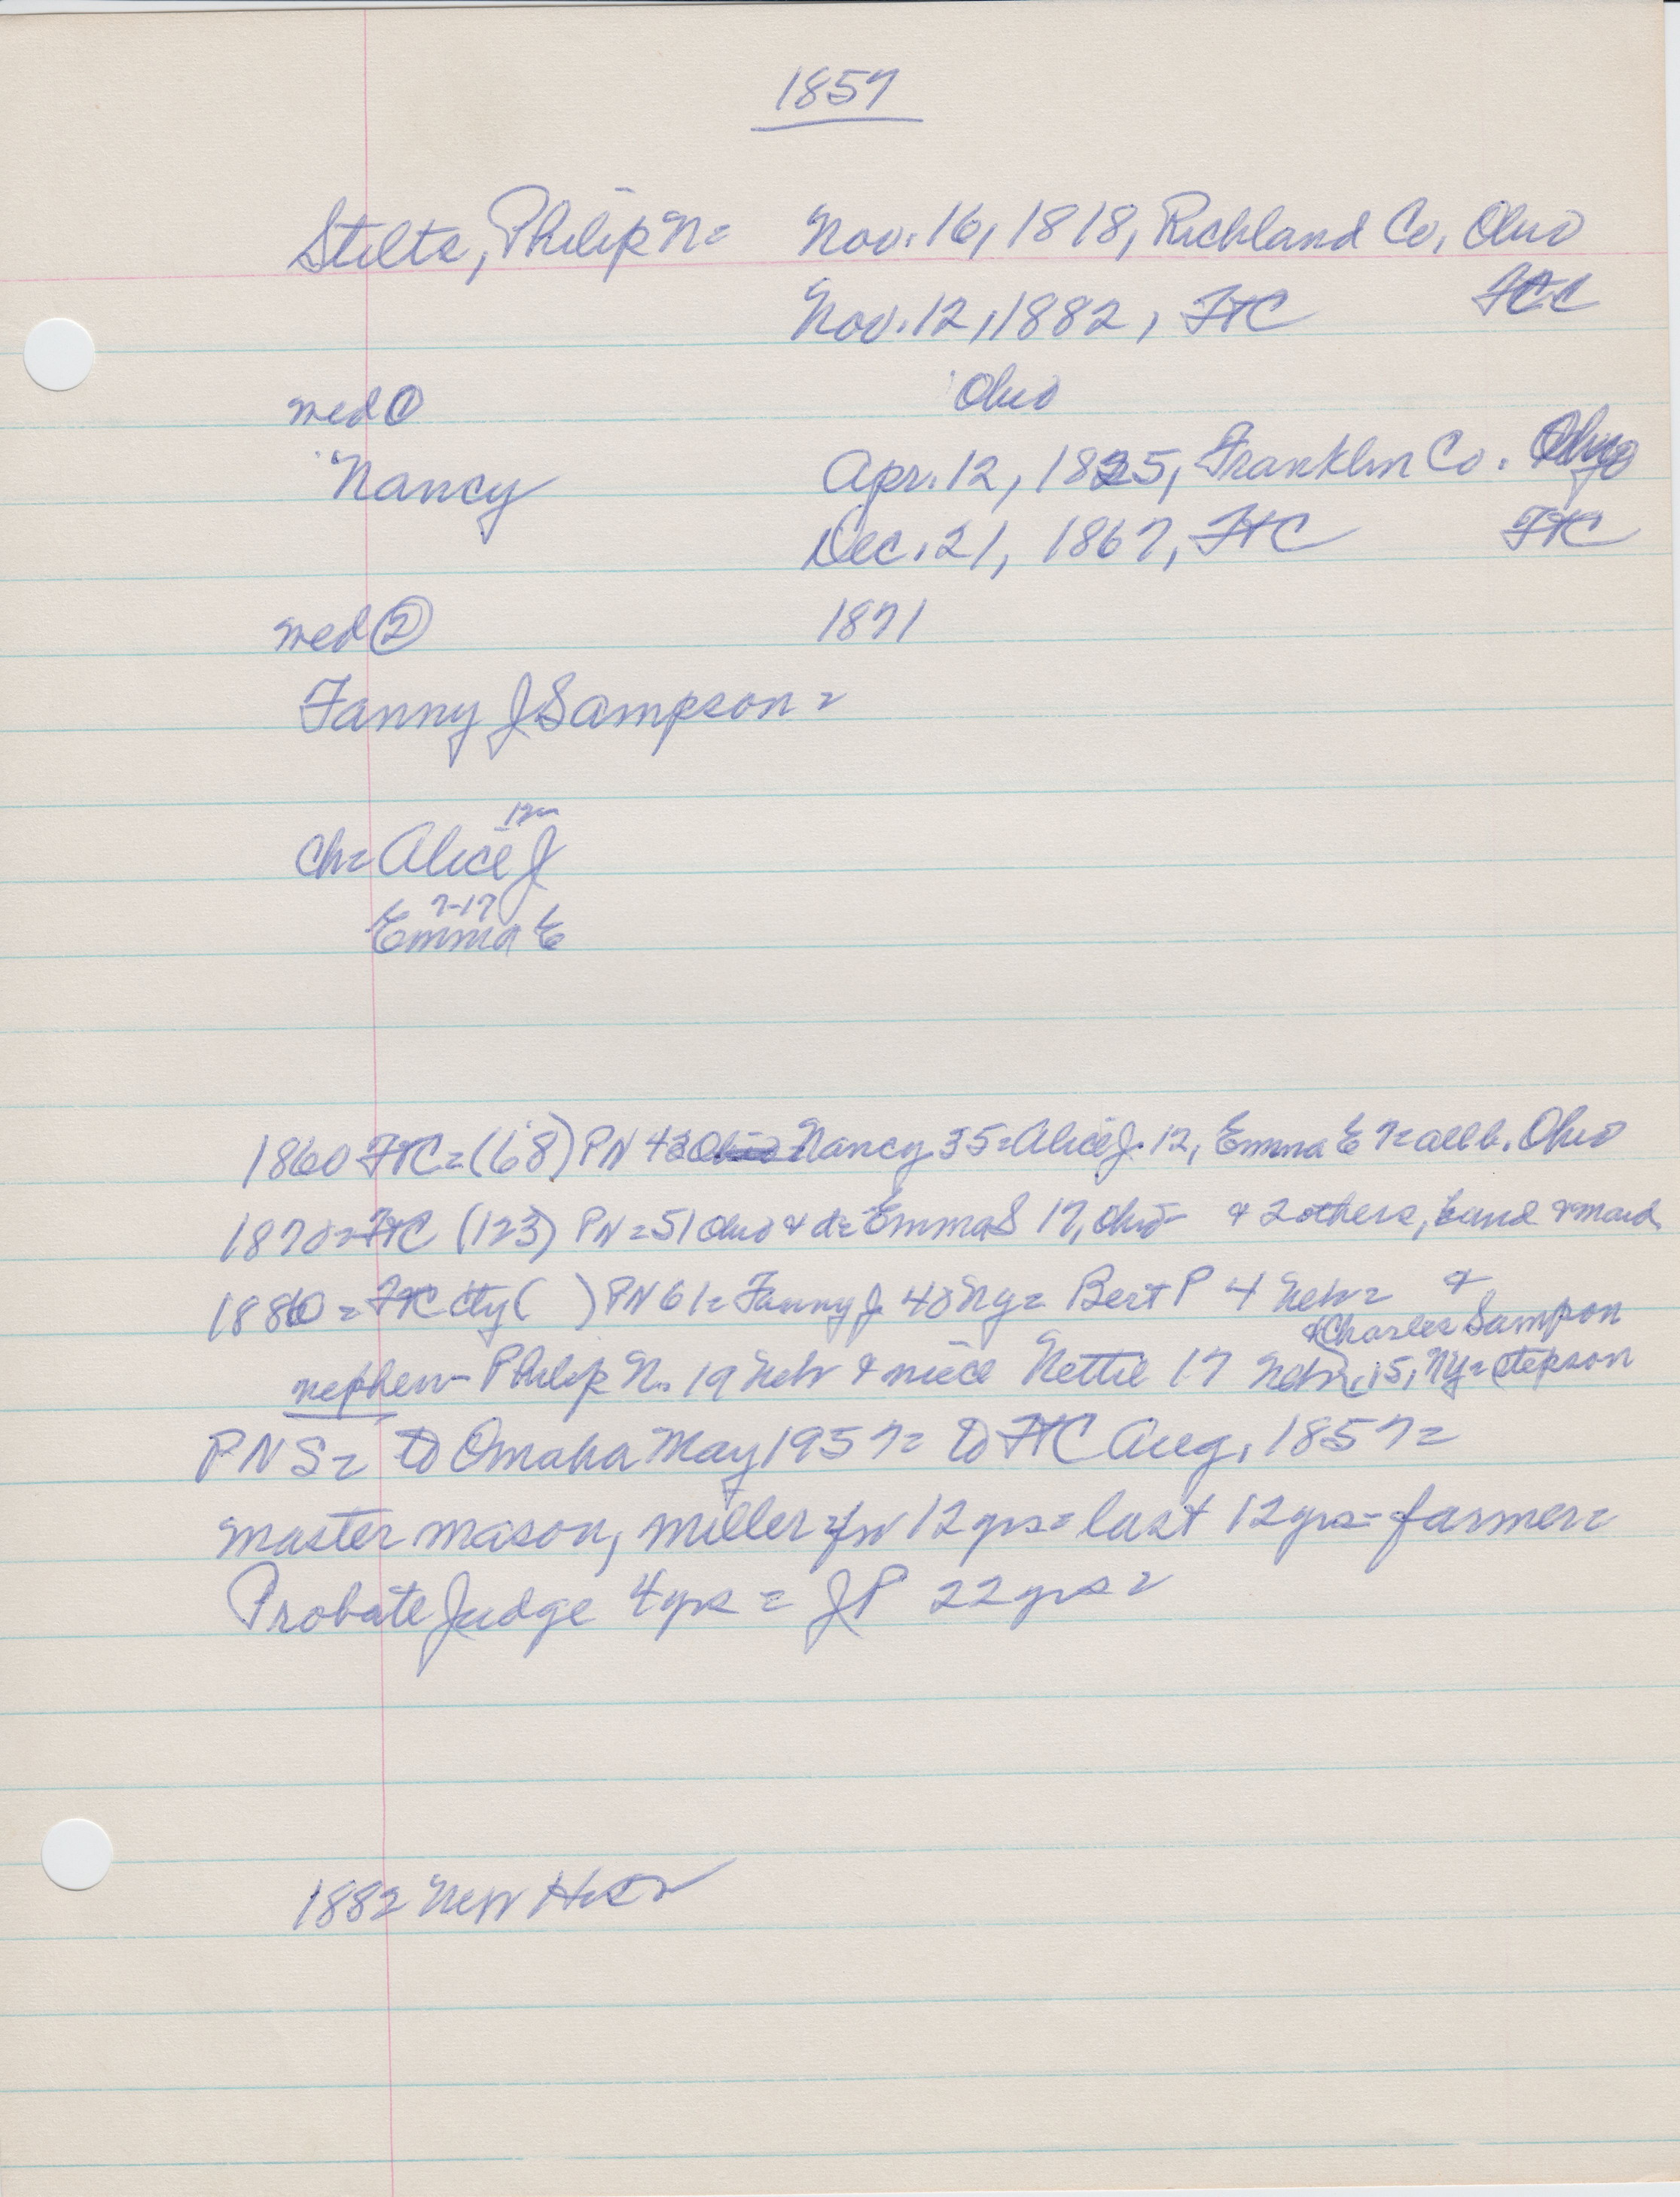 1857
Stilts, Philip N= Nov. 16, 1818, Richland Co, Ohio
Nov. 12, 1882, FTC FCC
med ① Ohio
Nancy Apr. 12, 1825, Franklin Co. Ohio
Dec. 21, 1867, FTC FTC
med ② 1871
Fanny J Sampson =
12
Ch= Alice J
7-17
Emma E
1860 FTC= (68) PN 42 Nancy 35= Alice J. 12, Emma E 7= all b. Ohio
1870= FTC (123) PN=51 Ohio & d= Emma S 17, Ohio & 2 others, hand & maid
1880= FTC cty ( ) PN 61= Fanny J 40 Ny= Bert P 4 Neb= &
& Charles Sampson
nephew- Philip N. 19 Neb & niece Nettie 17 Neb, 15, Ny= stepson
PNS= to Omaha May 1957= to FTC Aug, 1857=
master mason, miller for 12 yrs= last 12 yrs- farmer=
Probate Judge 4 yrs = JP 22 yrs=
1882 New Hist